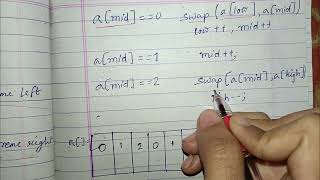 a[mid]==0 swap[a[low],a[mid]]
low++, mid++
a[mid]==1 mid++;
a[mid]==2 swap[a[mid],a[high]]
eme left
h--;
reme right a[-] 0 1 2 0 1